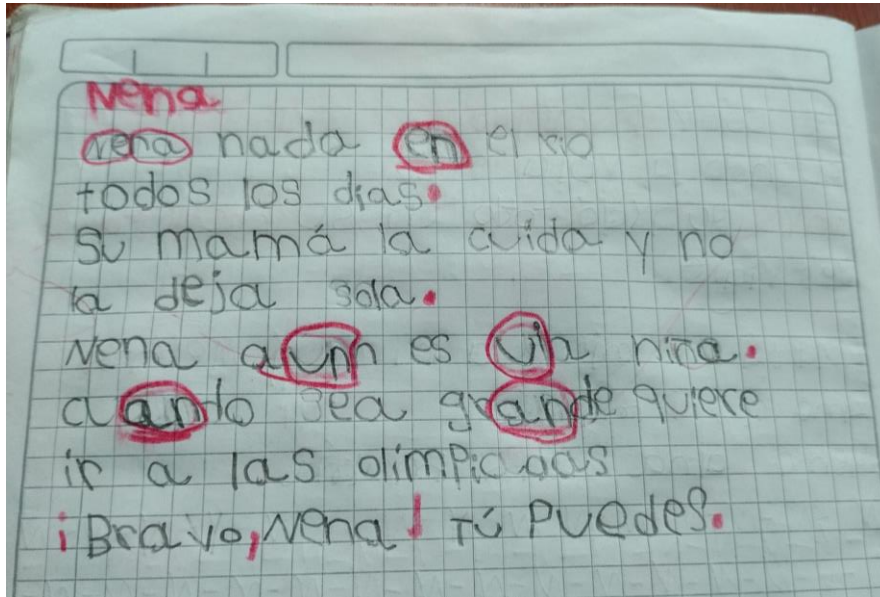 Nena
Nena nada en el río
todos los días.
Su mamá la cuida y no
la deja sola.
Nena aunn es un niña.
cuando sea grande quiere
ir a las olimpiadas
¡Bravo, Nena! Tú Puedes.